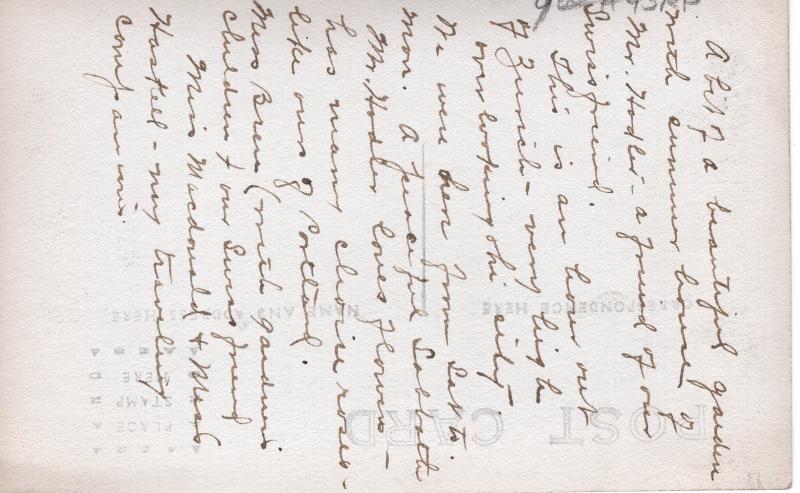 A bit of a beautiful garden
with summer home of
Mr. Hodler - a friend of our
Swiss friend.
This is an hour out
of Zurich - very high
overlooking the city
We were here from Sat. to
Mon. A peaceful Sabbath
Mr. Hodler loves flowers -
has many choice roses -
like ours of Portland.
Miss (with gardener's
children & our Swiss friend
Miss Macdonald & Miss
Hostell - my traveling
companions.
POST CARD
CORRESPONDENCE HERE
NAME AND ADDRESS HERE
PLACE
STAMP
HERE